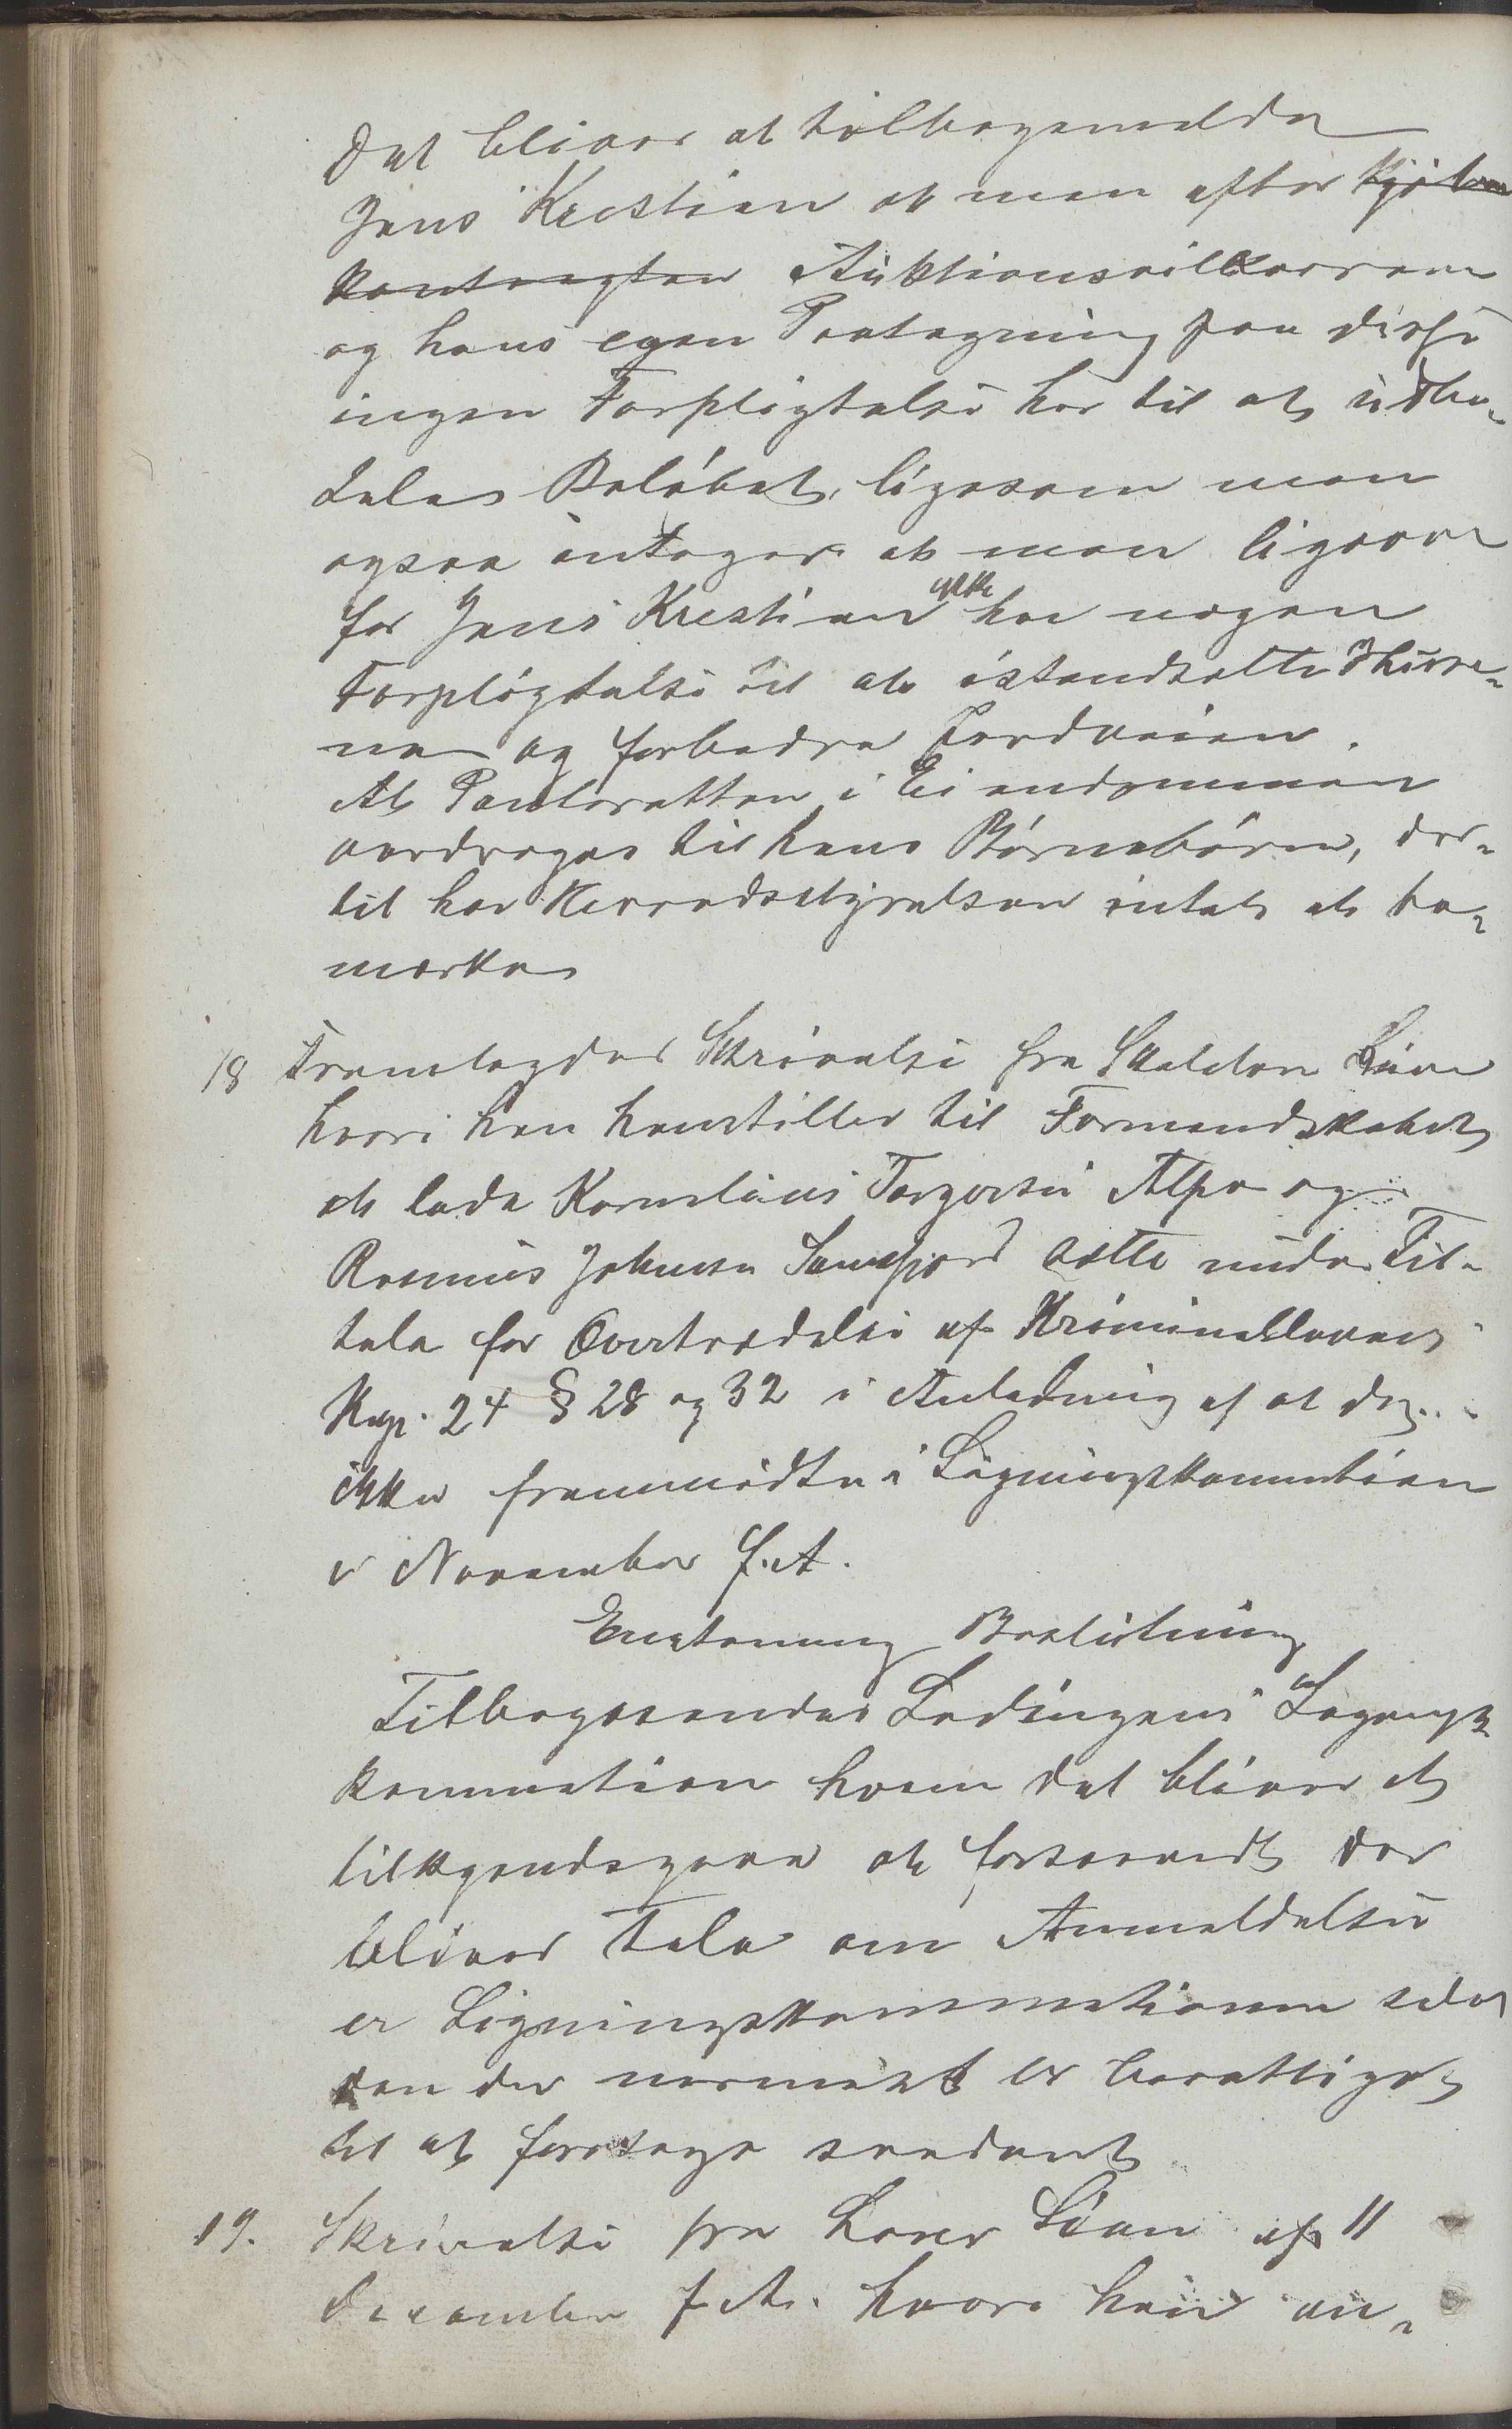 Det bliver at tilbagemelde
Jens Kristian at man efter Kjøbe
kontragten Auktionsvilkaarene
og hans egen Paategning paa disse
ingen Forpligtelse har til at udbe-
tales Beløbet, ligesom man
ogsaa intager at man ligeover
for Jens Kristian ikke har nogen
Forpligtelse til at istandsætte Husene-
ne og forbedre Jordveien.
At Panteretten i Eiendommen
overdrages til hans Børnebørn, der-
til har Herredsstyrelsen intet at be-
mærke
18 Fremlagdes Skrivelse fra Skolelærer
hvori han henstiller til Formandskabet
at lade Kornelius Torgersen og
Rasmus Johnsen sætte under Til-
tale for Overtrædelse af Kriminallovens
Kap. 24 § 28 og 32 i Anledning af at de
ikke fremmødte i Ligningskommission
i November f. A.
Enstemmig Beslutning
Tilbagesendes Lødingens Lignings-
kommission hvem det bliver at
tilkjendegive at forsaavidt der
bliver Tale om Anmeldelse
er Ligningskommissionen selv
den der nærmest er berettiget
til at foretage saadant
19. Skrivelse fra Lars af 11
December f. A. hvori han an-